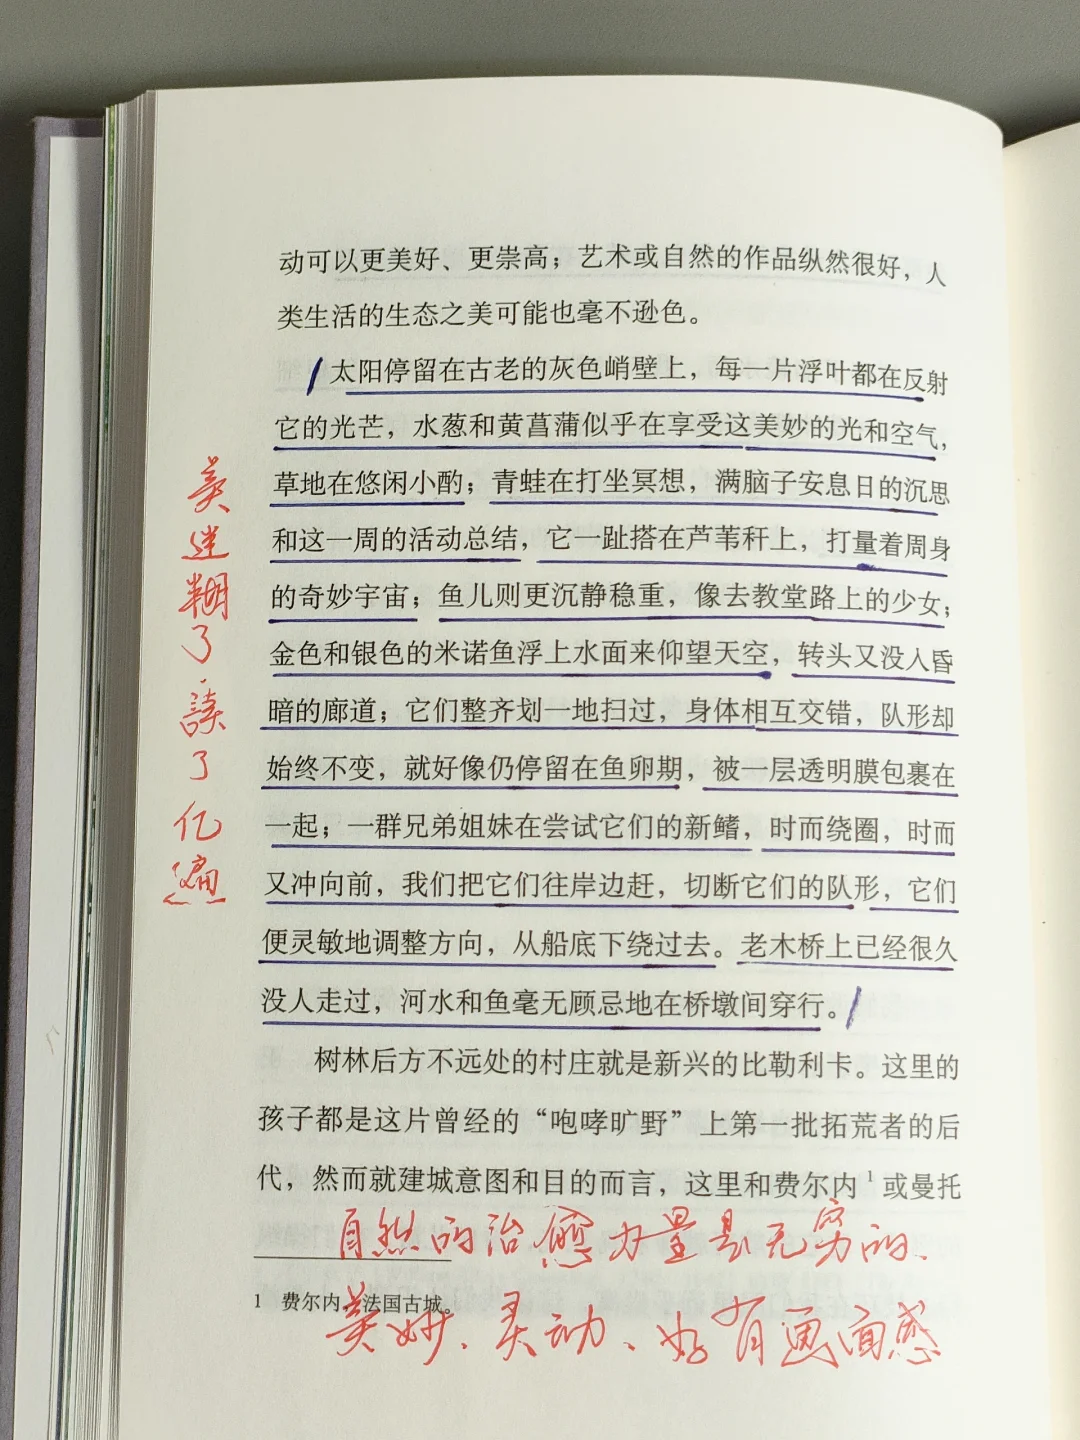 动可以更美好、更崇高；艺术或自然的作品纵然很好，人
类生活的生态之美可能也毫不逊色。
太阳停留在古老的灰色峭壁上，每一片浮叶都在反射
它的光芒，水葱和黄菖蒲似乎在享受这美妙的光和空气，
草地在悠闲小酌；青蛙在打坐冥想，满脑子安息日的沉思
和这一周的活动总结，它一趾搭在芦苇秆上，打量着周身
的奇妙宇宙；鱼儿则更沉静稳重，像去教堂路上的少女；
金色和银色的米诺鱼浮上水面来仰望天空，转头又没入昏
暗的廊道；它们整齐划一地扫过，身体相互交错，队形却
始终不变，就好像仍停留在鱼卵期，被一层透明膜包裹在
一起；一群兄弟姐妹在尝试它们的新鳍，时而绕圈，时而
又冲向前，我们把它们往岸边赶，切断它们的队形，它们
便灵敏地调整方向，从船底下绕过去。老木桥上已经很久
没人走过，河水和鱼毫无顾忌地在桥墩间穿行。
树林后方不远处的村庄就是新兴的比勒利卡。这里的
孩子都是这片曾经的“咆哮旷野”上第一批拓荒者的后
代，然而就建城意图和目的而言，这里和费尔内1或曼托
1 费尔内，法国古城。
美迷糊了，读了亿遍
自然的治愈力量是无穷的、
美妙、灵动、好有画面感